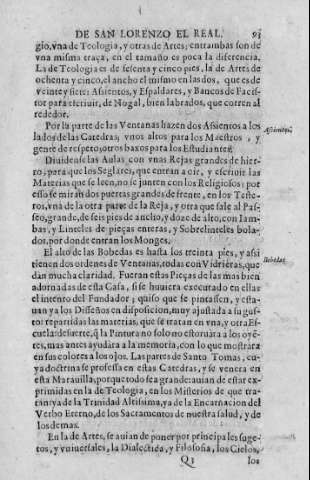 DE SAN LORENZO EL REAL. 93
gio, vna de Teologia, y otras de Artes; entrambas son de
vna misma traça, en el tamaño es poca la diferencia.
La de Teologia es de sesenta y cinco pies, la de Artes de
ochenta y cinco, el ancho el mismo en las dos, que es de
veinte y siete: Asientos, y Espaldares, y Bancos de Facis-
tor para escriuir, de Nogal, bien labrados, que corren al
rededor.
Por la parte de las Ventanas hazen dos Assientos a los
lados de las Catedras, vnos altos para los Maestros, y
gente de respeto, otros baxos para los Estudiantes.
Assientos.
Diuidense las Aulas con vnas Rejas grandes de hier-
ro, para que los Seglares, que entran a oir, y escriuir las
Materias que se leen, no se junten con los Religiosos: por
esso se mira dos puertas grandes de frente, en los Teste-
ros, vna de la otra parte de la Reja, y otra que sale al Pas-
seo, grande, de seis pies de ancho, y doze de alto, con Iam-
bas, y Linteles de pieças enteras, y Sobrelinteles bola-
dos, por donde entran los Monges.
El alto de las Bobedas es hasta los treinta pies, y assi
Bobedas
tienen dos ordenes de Ventanas, todas con Vidrieras, que
dan mucha claridad. Fueran estas Pieças de las mas bien
adornadas de esta Casa, si se huuiera executado en ellas
el intento del Fundador; quiso que se pintassen, y esta-
uan ya los Disseños en disposicion, muy ajustada a su gus-
to: repartidas las materias, que se tratan en vna, y otra Es-
cuela: de suerte, q̃ la Pintura no solo no estoruàra à los oyē-
tes, mas antes ayudàra a la memoria, con lo que mostrara
en sus colores a los ojos. Las partes de Santo Tomas, cu-
ya doctrina se professa en estas Catedras, y se venera en
esta Marauilla, porque todo sea grande: auian de estar ex-
primidas en la de Teologia, en los Misterios de que tra-
tan; ya de la Trinidad Altissima, ya de la Encarnacion del
Verbo Eterno, de los Sacramentos de nuestra salud, y de
los demas.
En la de Artes, se auian de poner por principales suge-
tos, y vniuersales, la Dialectica, y Filosofia, los Cielos,
Q3 los